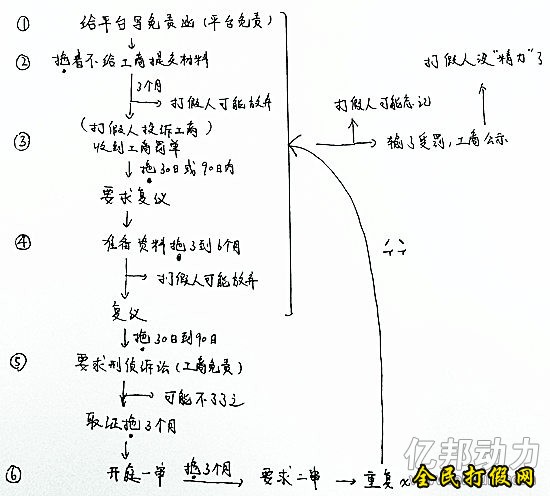 ① 给平台写免责函(平台免责)
② 拖着不给工商提交材料
3个月
打假人可能放弃
③ (打假人投诉工商)
收到工商罚单
拖30日或90日内
要求复议
④ 准备资料拖3到6个月
打假人可能放弃
复议
拖30日到90日
⑤ 要求刑侦诉讼(工商免责)
可能不了了之
取证拖3个月
⑥ 开庭一审 拖3个月 要求二审 重复
打假人没“精力”了
打假人可能忘记
输了受罚,工商公示
亿邦动力
全民打假网